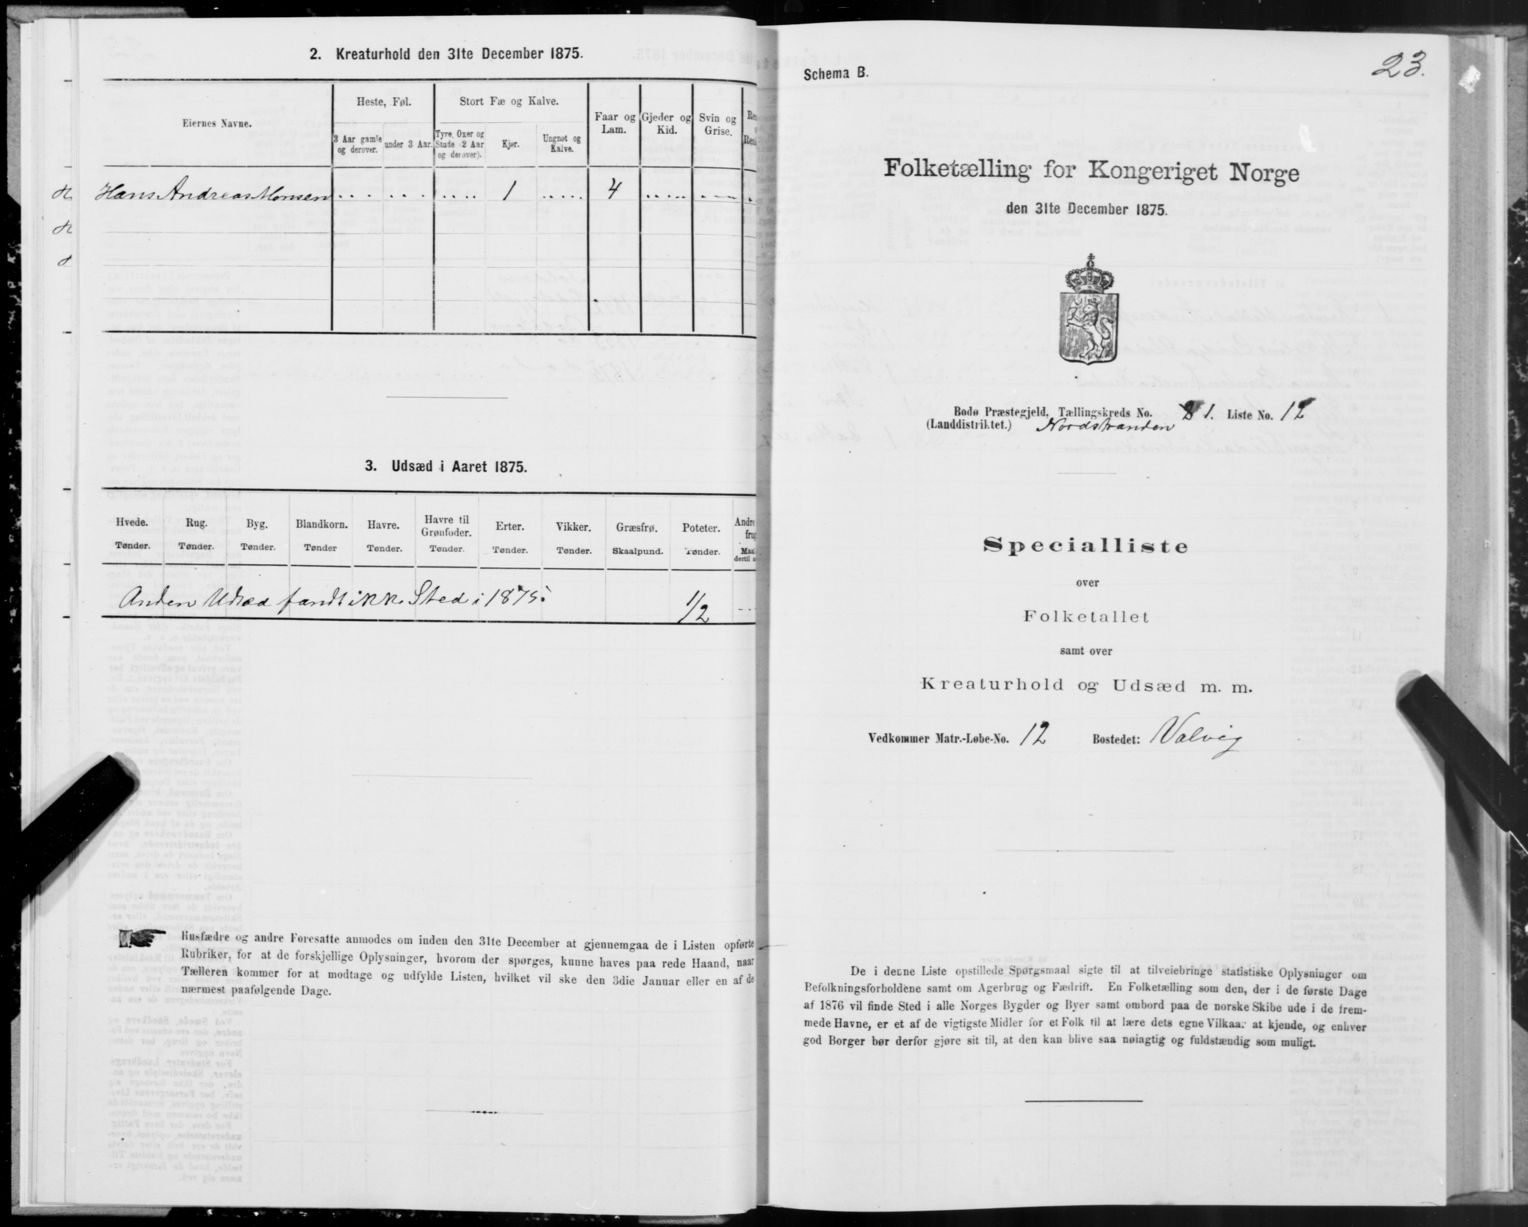 2. Kreaturhold den 31te December 1875.
Eiernes Navne.
Heste, Føl.
Stort Fæ og Kalve.
Faar og Lam.
Gjeder og Kid.
Svin og Grise.
3 Aar gamle og derover.
under 3 Aar.
Tyre, Oxer og Stude (2 Aar og derover).
Kjør.
Ungnøt og Kalve.
Hans Andreas Monsen 1 4
3. Udsæd i Aaret 1875.
Hvede. Rug. Byg. Blandkorn. Havre. Havre til Grønfoder. Erter. Vikker. Græsfrø. Poteter.
Tønder. Tønder. Tønder. Tønder Tønder. Tønder. Tønder. Tønder. Skaalpund. Tønder.
Anden Udsæd fandt ikke Sted i 1875. 1/2
Husfædre og andre Foresatte anmodes om inden den 31te December at gjennemgaa de i Listen opførte
Rubriker, for at de forskjellige Oplysninger, hvorom der spørges, kunne haves paa rede Haand, naar
Tælleren kommer for at modtage og udfylde Listen, hvilket vil ske den 3die Januar eller en af de
nærmest paafølgende Dage.
23.
Schema B.
Folketælling for Kongeriget Norge
den 31te December 1875.
Bodø Præstegjeld, Tællingskreds No. 1. Liste No. 12
(Landdistriktet.) Nordstranden
Specialliste
over
Folketallet
samt over
Kreaturhold og Udsæd m. m.
Vedkommer Matr.-Løbe-No. 12 Bostedet: Valvig
De i denne Liste opstillede Spørgsmaal sigte til at tilveiebringe statistiske Oplysninger om
Befolkningsforholdene samt om Agerbrug og Fædrift. En Folketælling som den, der i de første Dage
af 1876 vil finde Sted i alle Norges Bygder og Byer samt ombord paa de norske Skibe ude i de frem-
mede Havne, er et af de vigtigste Midler for et Folk til at lære dets egne Vilkaar at kjende, og enhver
god Borger bør derfor gjøre sit til, at den kan blive saa nøiagtig og fuldstændig som muligt.